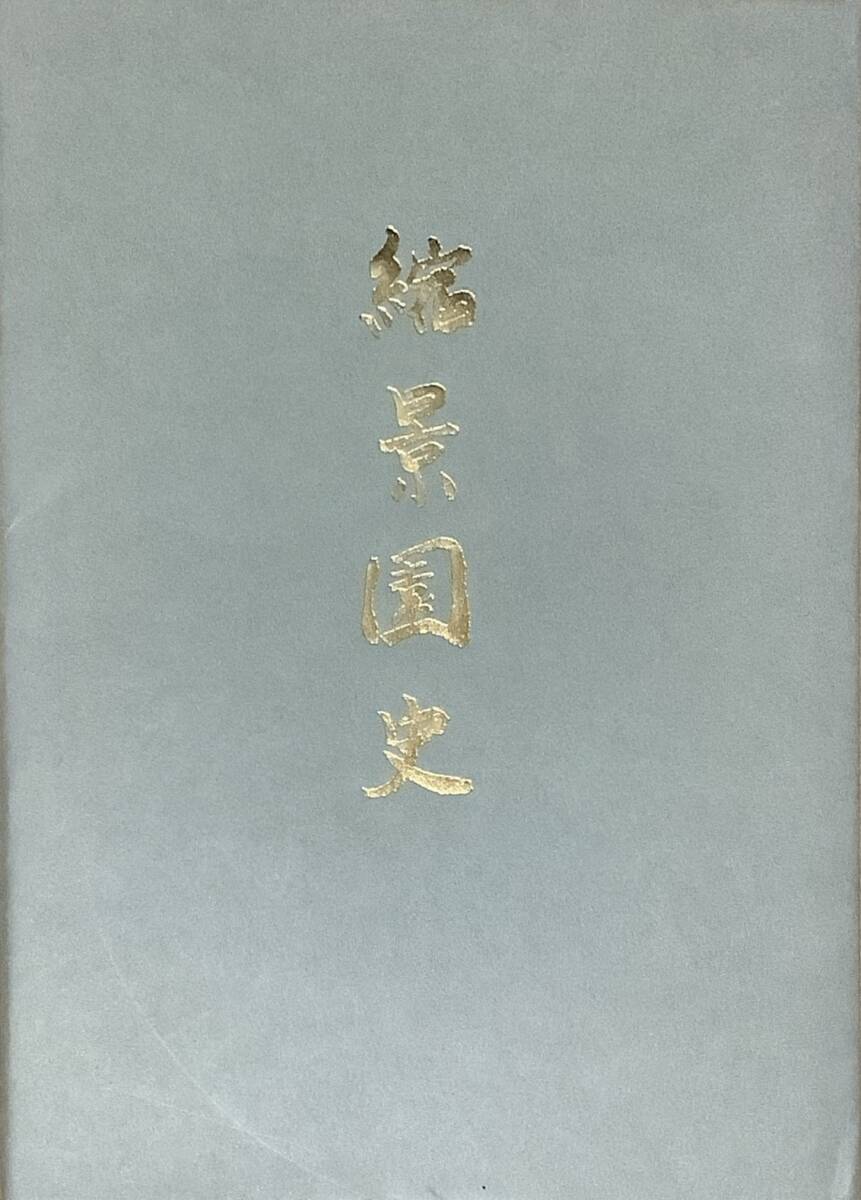 縮景園史